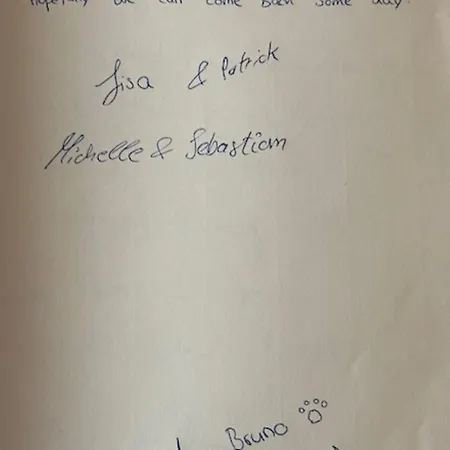 hopefully we can come back some day.
Lisa & Patrick
Michelle & Sebastian
Bruno